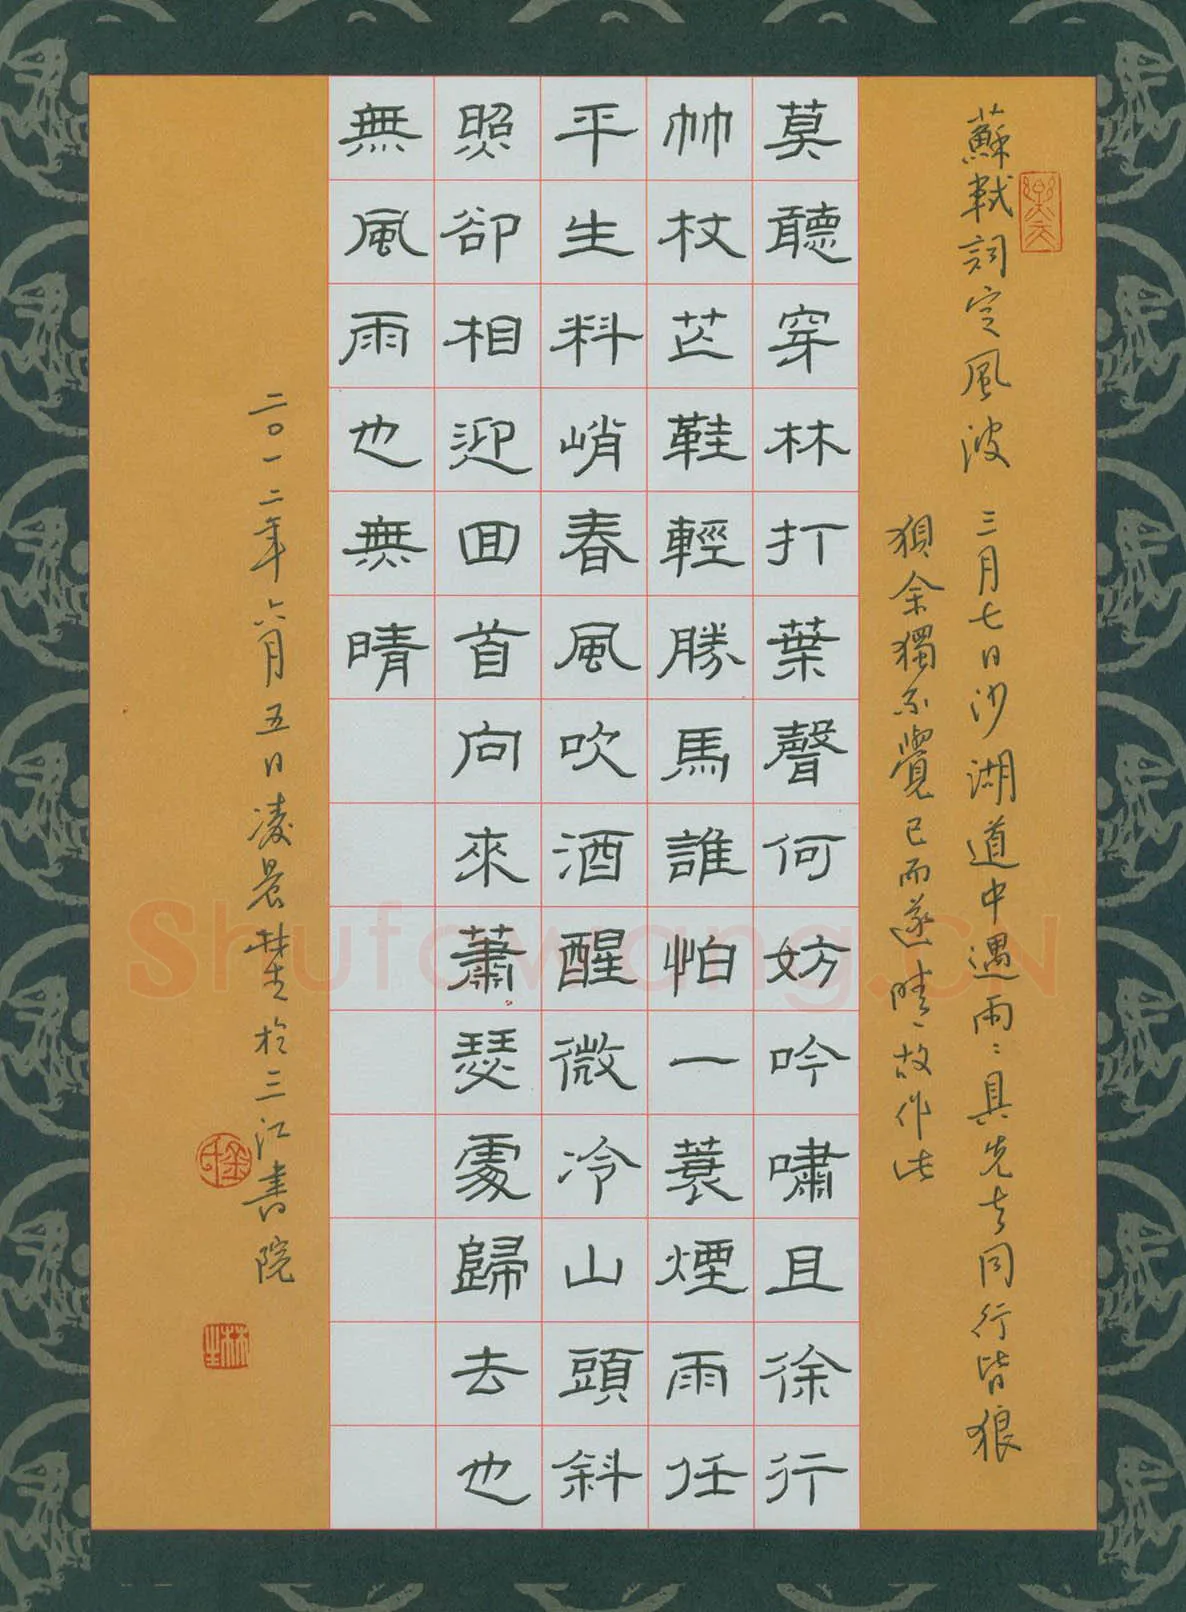 蘇軾詞定風波 三月七日沙湖道中遇雨雨具先去同行皆狼
狽余獨不覺已而遂晴故作此
莫聽穿林打葉聲何妨吟嘯且徐行
竹杖芒鞋輕勝馬誰怕一蓑煙雨任
平生料峭春風吹酒醒微冷山頭斜
照卻相迎回首向來蕭瑟處歸去也
無風雨也無晴
二〇一二年六月五日凌晨林生於三江書院
Shufawang.CN